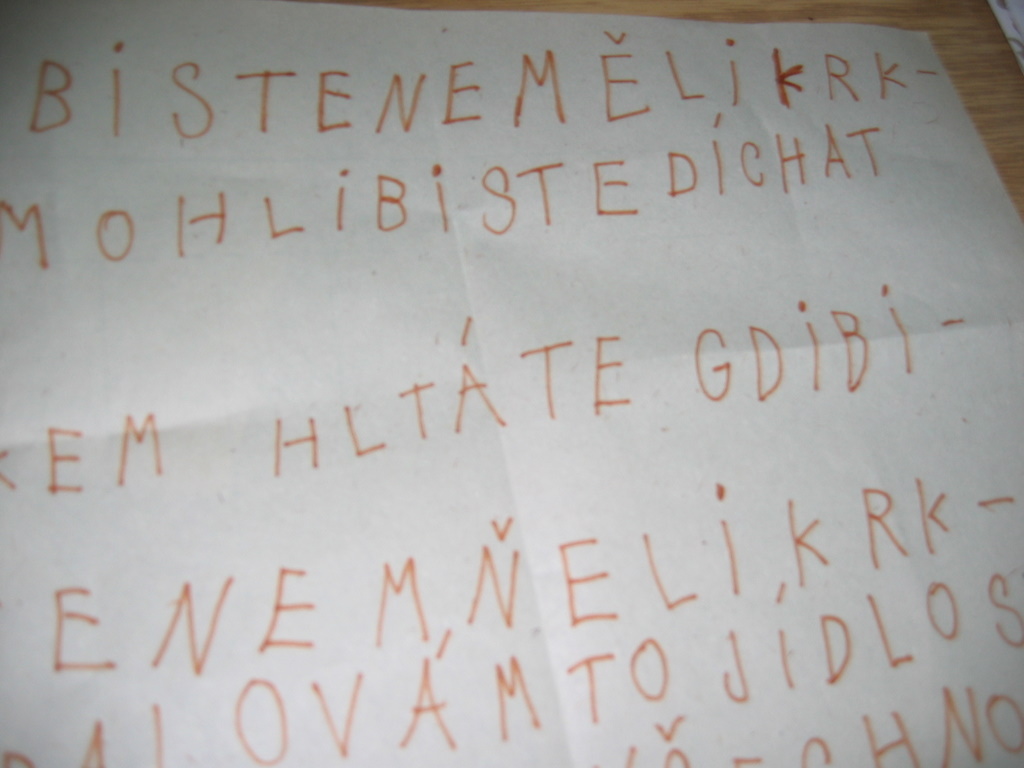 BISTENEMĚLI KRK-
MOHLIBISTE DÍCHAT
KEM HLTÁTE GDIBI-
ENEMŇELI KRK-
OVÁM TO JÍDLO